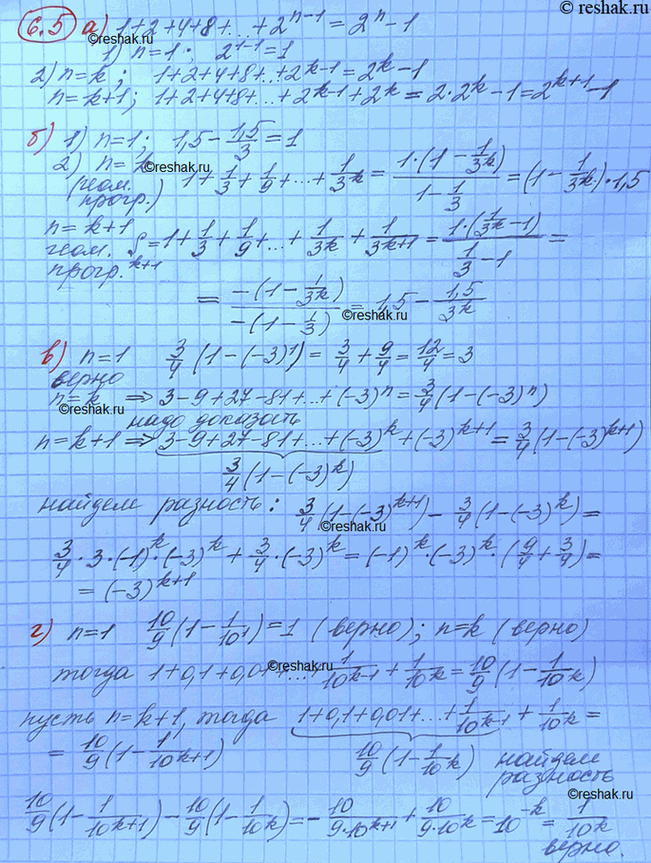 © reshak.ru
6.5 а) 1+2+4+8+...+2^{n-1} = 2^n - 1
1) n=1; 2^{1-1} = 1
2) n=k; 1+2+4+8+...+2^{k-1} = 2^k - 1
n=k+1; 1+2+4+8+...+2^{k-1}+2^k = 2·2^k - 1 = 2^{k+1} - 1
б) 1) n=1; 1,5 - 1,5/3 = 1
©reshak.ru
2) n=k 1 + 1/3 + 1/9 + ... + 1/3^k = 1·(1 - 1/3^k) / (1 - 1/3) = (1 - 1/3^k)·1,5
(геом. прогр.)
n=k+1
геом. прогр. S_{k+1} = 1 + 1/3 + 1/9 + ... + 1/3^k + 1/3^{k+1} = 1·(1/3^k - 1) / (1/3 - 1) =
= -(1 - 1/3^k) / -(1 - 1/3) = 1,5 - 1,5/3^k
©reshak.ru
в) n=1 3/4 (1-(-3)^1) = 3/4 + 9/4 = 12/4 = 3
верно
n=k ⇒ 3-9+27-81+...+(-3)^n = 3/4 (1-(-3)^n)
©reshak.ru
надо доказать
n=k+1 ⇒ 3-9+27-81+...+(-3)^k + (-3)^{k+1} = 3/4 (1-(-3)^{k+1})
3/4 (1-(-3)^k)
найдем разность: 3/4 (1-(-3)^{k+1}) - 3/4 (1-(-3)^k) =
©reshak.ru
3/4 · 3·(-1)^k·(-3)^k + 3/4·(-3)^k = (-1)^k·(-3)^k·(9/4 + 3/4) =
= (-3)^{k+1}
г) n=1 10/9 (1 - 1/10^1) = 1 (верно); n=k (верно)
©reshak.ru
тогда 1+0,1+0,01+...+ 1/10^{k-1} + 1/10^k = 10/9 (1 - 1/10^k)
пусть n=k+1, тогда 1+0,1+0,01+...+ 1/10^{k-1} + 1/10^k =
©reshak.ru
= 10/9 (1 - 1/10^{k+1}) 10/9 (1 - 1/10^k) найдем
разность
©reshak.ru
10/9 (1 - 1/10^{k+1}) - 10/9 (1 - 1/10^k) = - 10/9·10^{k+1} + 10/9·10^k = 10^{-k} = 1/10^k
верно.
©reshak.ru